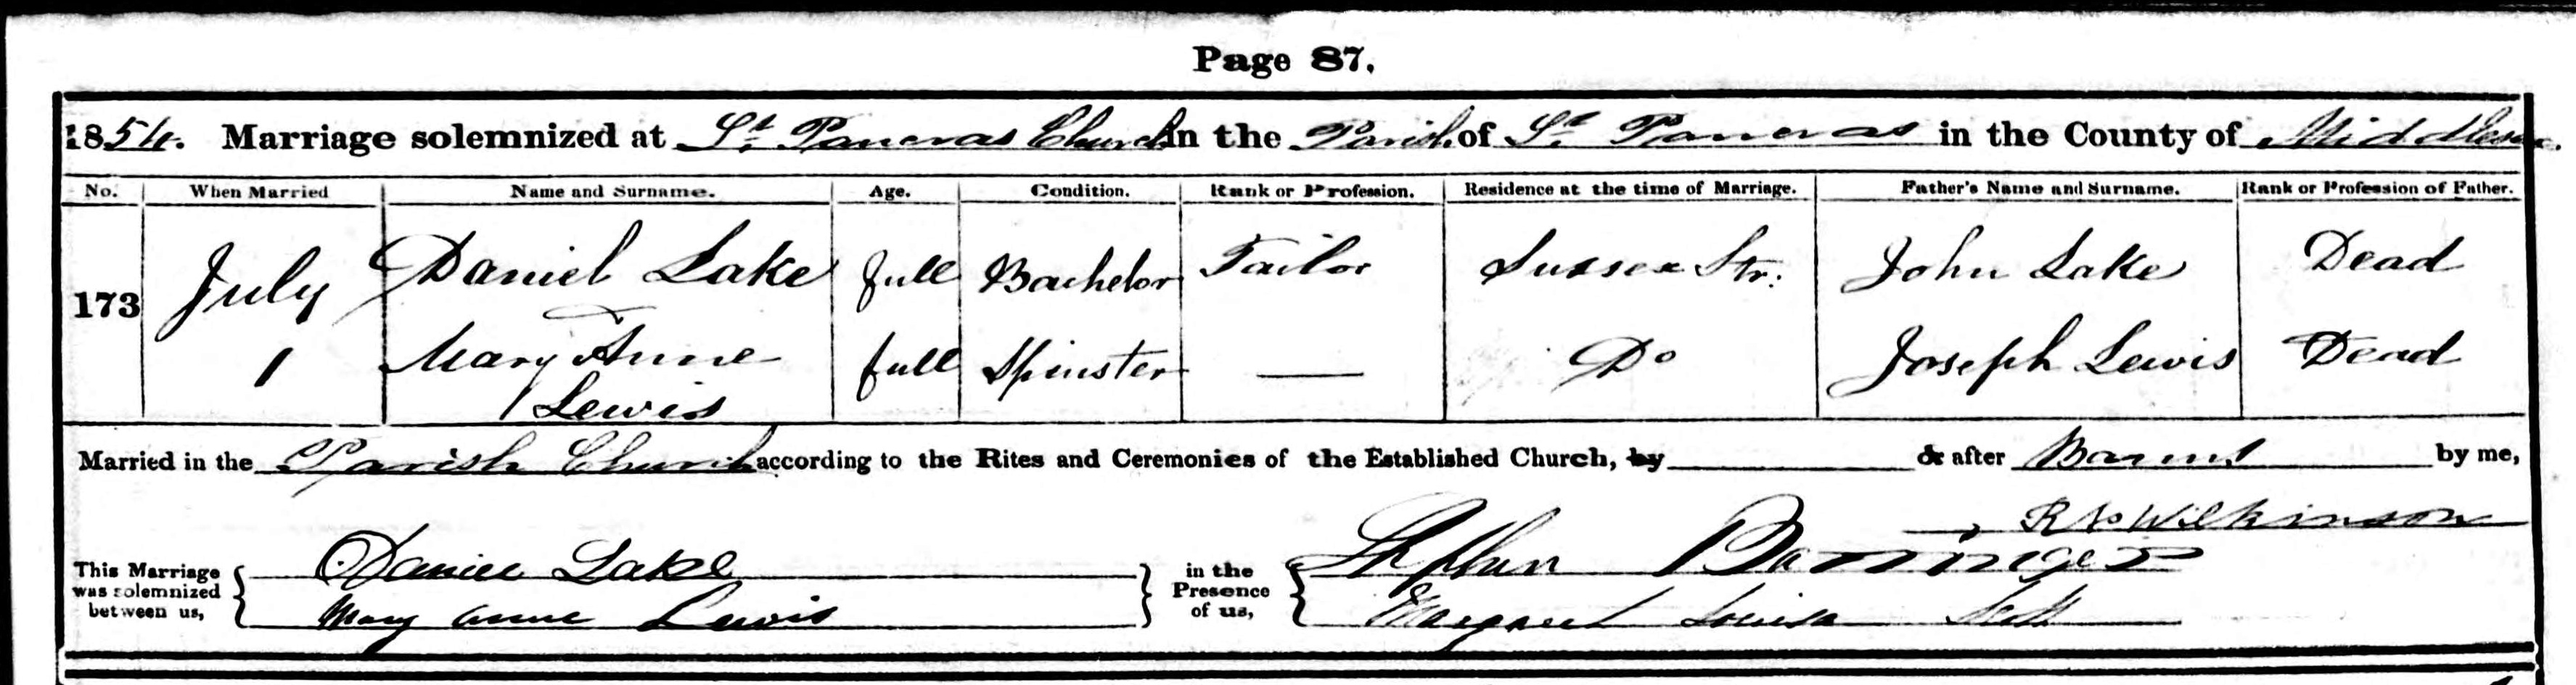 Page 87.
1854. Marriage solemnized at St. Pancras Church in the Parish of St. Pancras in the County of Middlesex.
No. When Married Name and Surname. Age. Condition. Rank or Profession. Residence at the time of Marriage. Father's Name and Surname. Rank or Profession of Father.
173 July 1 Daniel Lake full Bachelor Tailor Sussex Str: John Lake Dead
Mary Anne full Spinster — Do Joseph Lewis Dead
Lewis
Married in the Parish Church according to the Rites and Ceremonies of the Established Church, by or after Banns by me,
Wilkinson
This Marriage was solemnized between us, Daniel Lake in the Presence of us, Stephen
Mary Anne Lewis Margaret Louisa